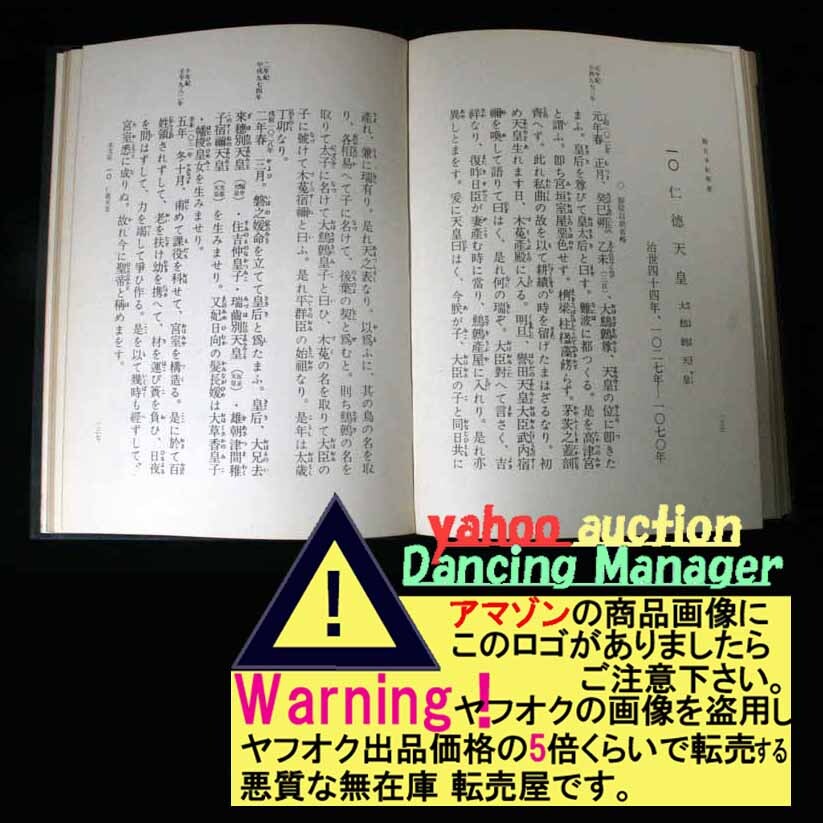 一〇 仁德天皇 大鷦鷯天皇
治世四十四年、一〇二七年―一〇七〇年
元年春 正月、癸巳朔 乙未(三日)、大鷦鷯尊、天皇の位に卽きた
まふ。皇后を尊びて皇太后と曰す。難波に都つくる。是を高津宮
と謂ふ。卽ち宮垣室屋堊色せず。桷梁柱楹藻餝らず。茅茨之蓋割
齊へず。此れ私曲の故を以て耕績の時を留げたまはざるなり。初
め天皇生れます日、木菟產殿に入る。明旦、譽田天皇大臣武內宿
禰を喚して語りて曰はく、是れ何の瑞ぞ。大臣對へて言さく、吉
祥なり、復昨日臣が妻產む時に當り、鷦鷯產屋に入れり。是れ亦
異しとまをす。爰に天皇曰はく、今朕が子、大臣の子と同日共に
產れ、兼に瑞有り。是れ天之表なり。以爲ふに、其の鳥の名を取
り、各相易へて子に名けて、後葉の契と爲むと、則ち鷦鷯の名を
取りて太子に名けて大鷦鷯皇子と曰ひ、木菟の名を取りて大臣の
子に號けて木菟宿禰と曰ふ。是れ平群臣の始祖なり。是年は太歲
丁卯なり。
二年春 三月。磐之媛命を立てて皇后と爲たまふ。皇后、大兄去
來穗別天皇・住吉仲皇子、瑞齒別天皇・雄朝津間稚
子宿禰天皇を生みませり。又妃日向の髮長媛は大草香皇子
・幡梭皇女を生みませり。
五年 冬十月、甫めて課役を科せて、宮室を構造る。是に於て百
姓領されずして、老を扶け幼を攜へて、材を運び簣を負ひ、日夜
を問はずして、力を竭して爭ひ作る。是を以て幾時も經ずして、
宮室悉に成りぬ。故れ今に聖帝と稱めまをす。
yahoo auction
Dancing Manager
アマゾンの商品画像に
このロゴがありましたら
ご注意下さい。
Warning!ヤフオクの画像を盗用し
ヤフオク出品価格の5倍くらいで転売する
悪質な無在庫 転売屋です。